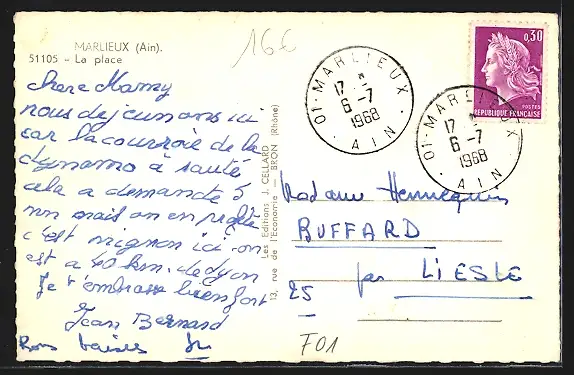 MARLIEUX (Ain).
51105 - La place
16€
Chere Mamy
nous dejeunons ici
car la courroie de la
dynamo à sauté
cela a demandé 5
mn mais on en profite
c'est mignon ici on
est a 40 km. de Lyon
Je t'embrasse bien fort
Jean Bernard
Bons baisers
Les Editions J. CELLARD
13, rue de l'Economie — BRON (Rhône)
01 - MARLIEUX
17 H
6 - 7
1968
AIN
01 - MARLIEUX
17 H
6 - 7
1968
AIN
0,30
POSTES
REPUBLIQUE FRANÇAISE
Madame Hennequin
BUFFARD
par LIESLE
25
F01